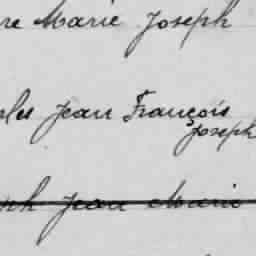 re Marie Joseph
les Jean François
Joseph
ph Jean Marie